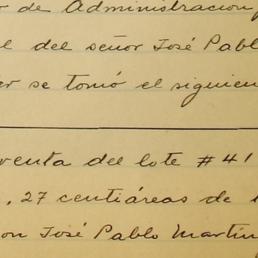 de Administracion
del señor José Pablo
se tomó el siguien
venta del lote # 41
, 27 centiáreas de
José Pablo Martín